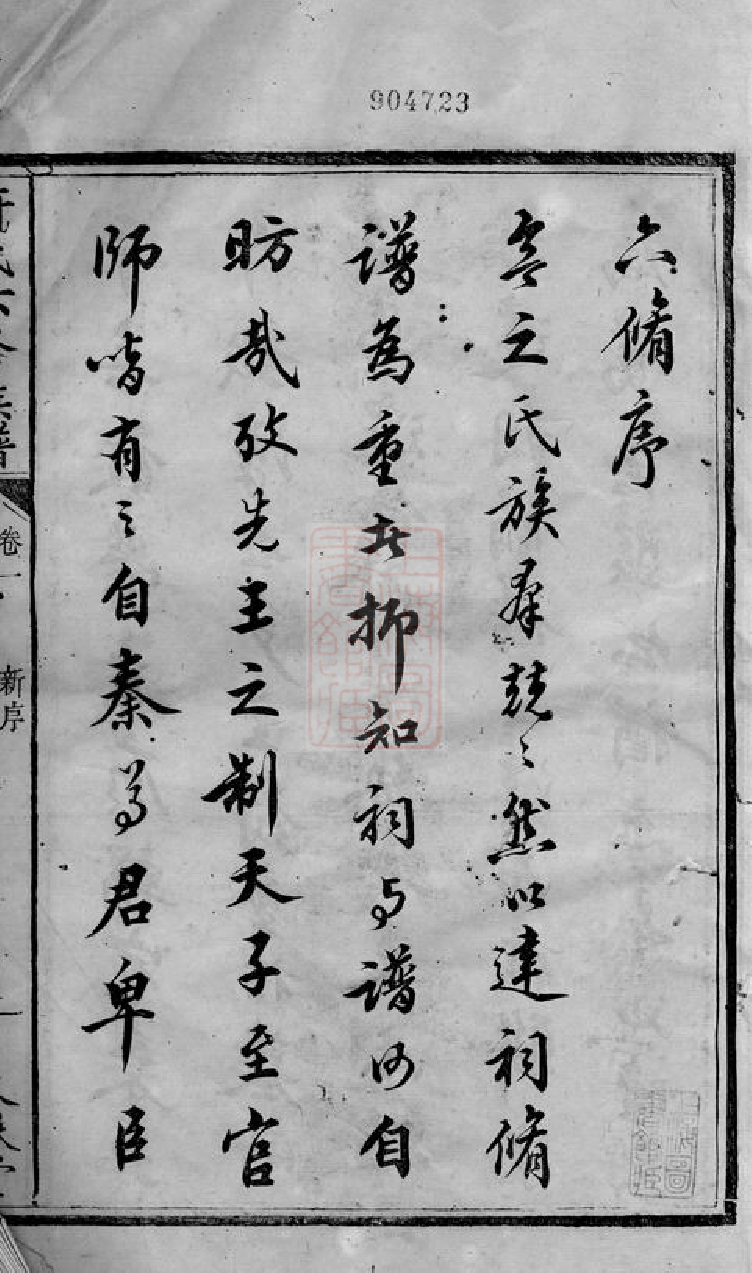 904723
六脩序
寧之氏族羣兢〻然以建祠脩
譜為重抑知祠与譜何自
昉哉攷先王之制天子至官
師皆有之自秦尊君卑臣
卷一
新序